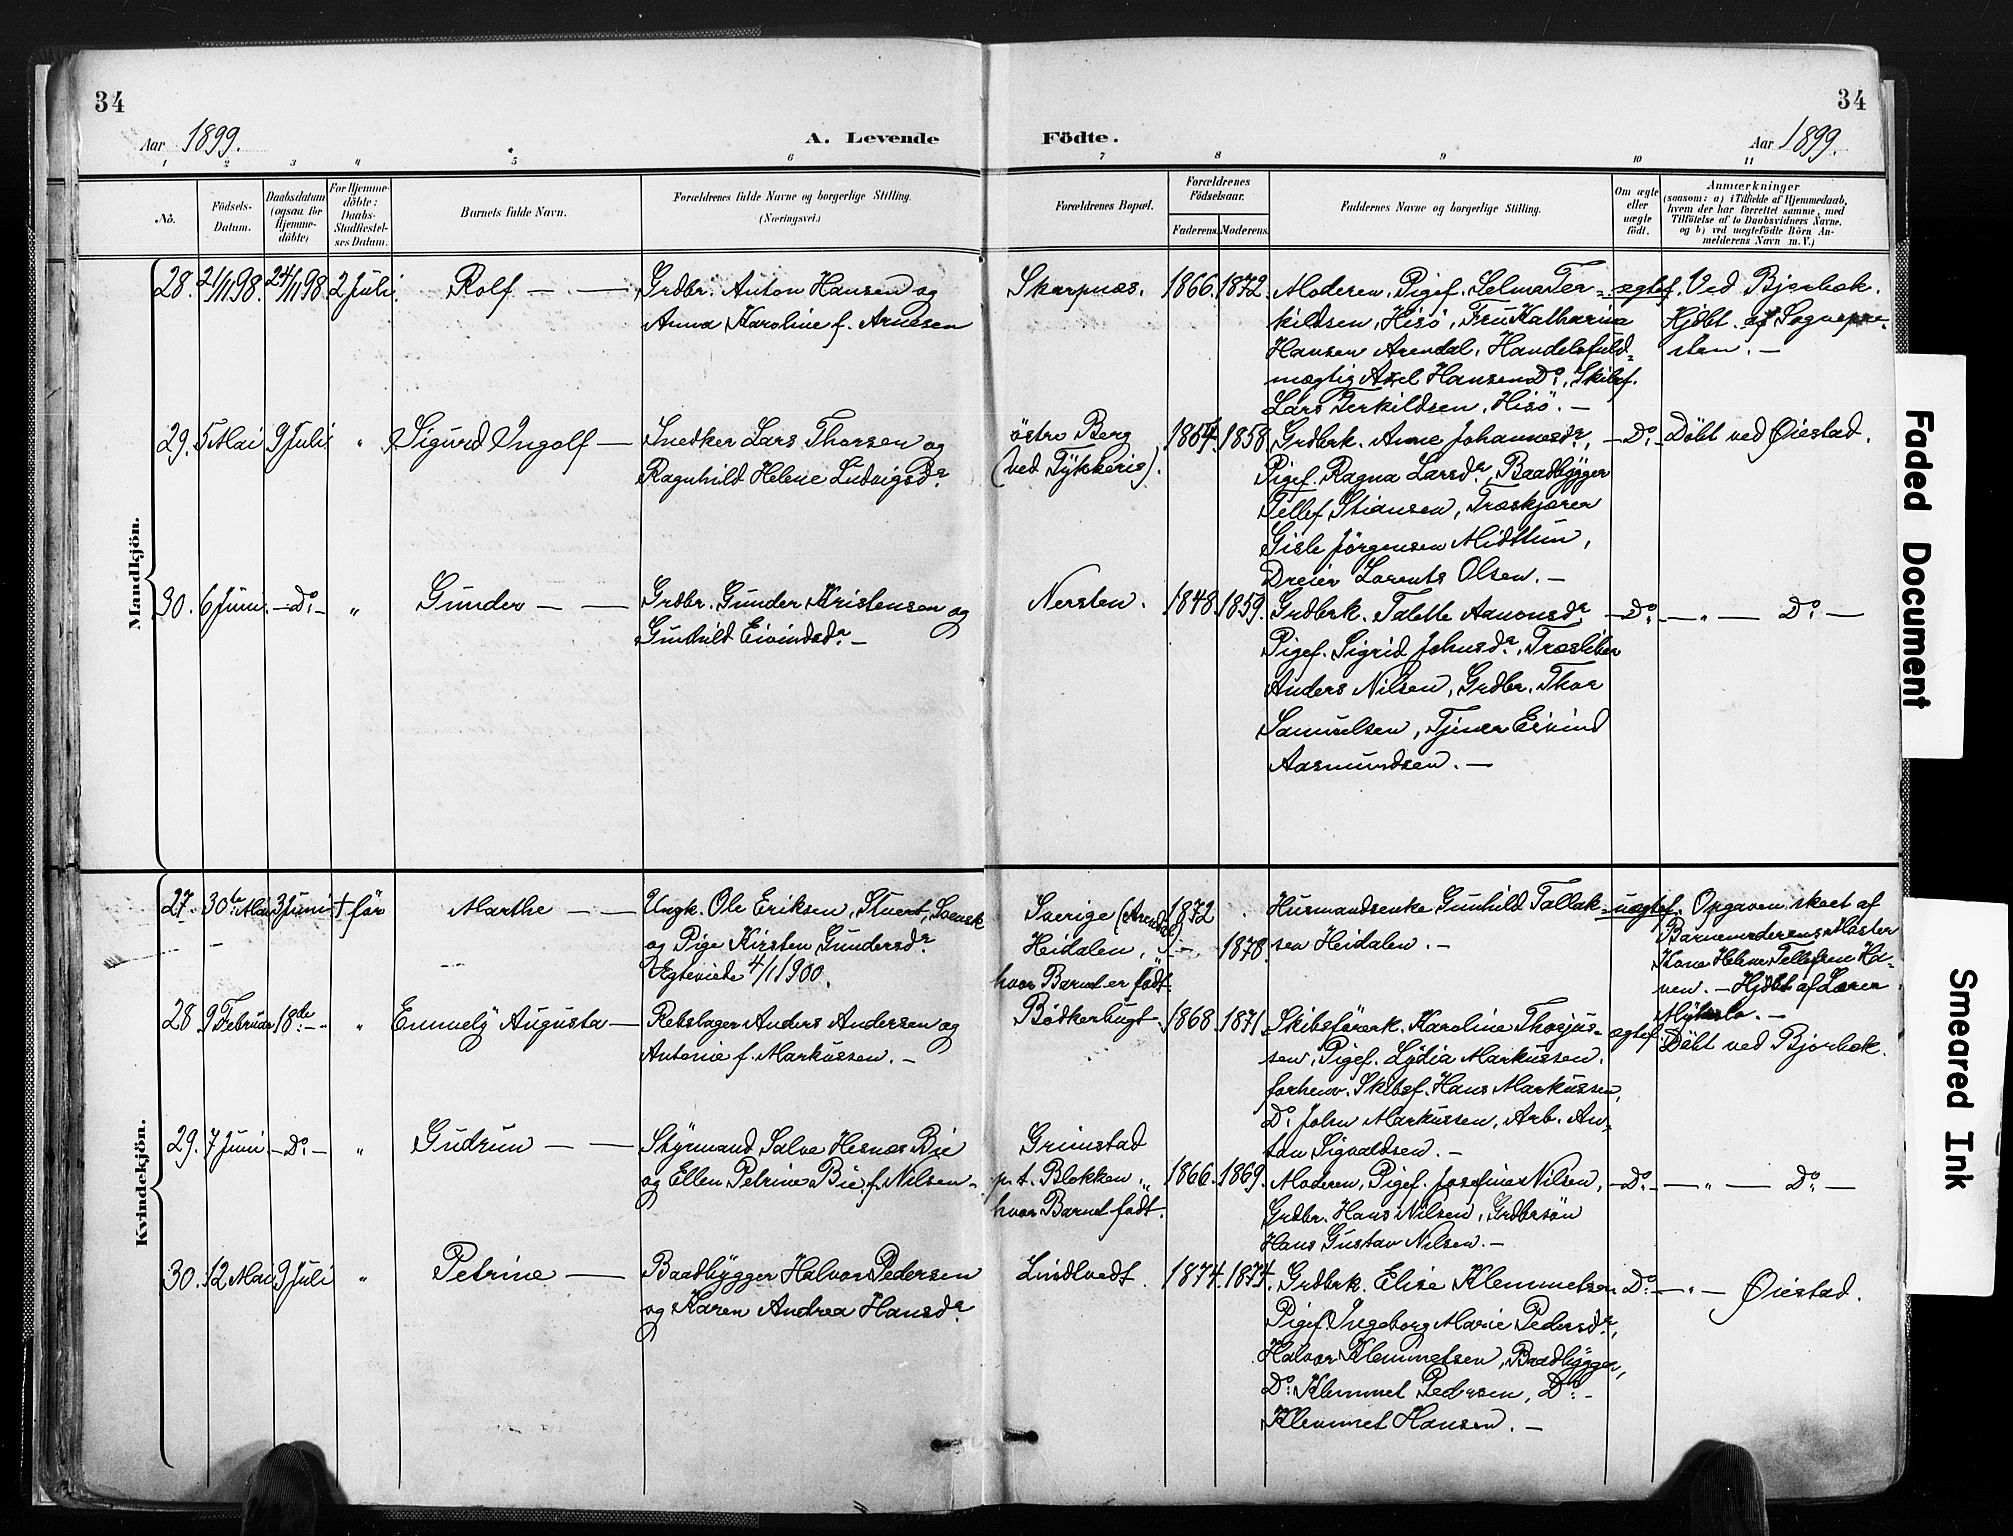 34
34
Aar 1899.
A. Levende
Födte.
Aar 1899.
1 2 3 4 5 6 7 8 9 10 11
No.
Födsels-
Datum.
Daabsdatum
(ogsaa for
Hjemme-
döbte)
For Hjemme-
döbte:
Daabs-
Stadfæstel-
ses Datum.
Barnets fulde Navn.
Forældrenes fulde Navne og borgerlige Stilling.
(Næringsvei.)
Forældrenes Bopæl.
Forældrenes
Födselsaar.
Faderens.
Moderens.
Faddernes Navne og borgerlige Stilling.
Om ægte
eller
uægte
födt.
Anmærkninger
(saasom: a) i Tilfælde af Hjemmedaab,
hvem der har forrettet samme, med
Tilföielse af to Daabsvidners Navne,
og b) ved uægtefödte Börn An-
melderens Navn m. V.)
Mandkjön.
28. 21/11 98. 24/11 98. 2 Juli. Rolf — —
Grdbr. Anton Hansen og
Anna Karoline f. Arnesen
Skarpnæs. 1866. 1872.
Moderen, Pigef. Selma Ter-
kildsen, Hisö, Fru Katharina
Hansen Arendal, Handelsfuld-
mægtig Axel Hansen Do:, Skibsf.
Lars Terkildsen, Hisö. —
ægtef. Ved Bjorbæk.
Hjdbt. af Sognepre-
sten. —
29. 5 Mai 9 Juli " Sigurd Ingolf —
Snedker Lars Thorsen og
Ragnhild Helene Ludvigsdr.
östre Berg
(ved Tykkeris).
1864. 1858.
Grdbrk. Anne Johannesdr,
Pigef. Ragna Larsdr, Baadbygger
Tellef Stiansen, Træskjærer
Gisle Jörgensen Midttun,
Dreier Lorents Olsen. —
— Do: — Döbt ved Øiestad.
30. 6 Juni. — Do: — " Gunder — —
Grdbr. Gunder Kristensen og
Gunhild Eivindsdr. —
Nersten. 1848. 1859.
Grdbrk. Talette Aanonsdr
Pigef. Sigrid Johnsdr,
Anders Nilsen, Grdbr. Thor
Samuelsen, Tjener Eivind
Aasmundsen. —
— Do: — " — Do: —
Kvindekjön.
27. 30te Mai 3 Juni † för Marthe — —
Ungk. Ole Eriksen, Stuert, Svensk
og Pige Kirsten Gundersdr
Ægteviede 4/1 1900.
Sverige (Arendal)
Heidalen, "
hvor Barnet er födt.
1872
— 1878.
Husmandsenke Gunhild Tallak-
sen Heidalen. —
uægtef. Opgaven skeet af
Barnemoderens Moster
Kone Helene Tellefsen Ha-
ven. — Hjdbt af Lærer
28 9 Februar 18de: — " Emmely Augusta —
Rebslager Anders Andersen og
Antonie f. Markussen. —
Bödkerbugt. 1868. 1871.
Skibsförerk. Karoline Thorjus-
sen, Pigef. Lydia Markussen,
forhenv. Skibsf. Hans Markussen,
Do: John Markussen, Arb. An-
ton Sigvaldsen. —
ægtef. Döbt ved Bjorbæk.
29. 7 Juni — Do: — " Gudrun — —
Styrmand Salve Hesnæs Bie
og Ellen Petrine Bie f. Nilsen.
Grimstad
p. t. Blokken "
hvor Barnet födt.
1866. 1869.
Moderen, Pigef. Josefine Nilsen,
Grdbr. Hans Nilsen, Grdbrsön
Hans Gustav Nilsen. —
— Do: — " — Do: —
30. 12 Mai 9 Juli " Petrine —
Baadbygger Halvor Pedersen
og Karen Andrea Hansdr.
Lindtvedt. 1874. 1874.
Grdbrk. Elise Klemmetsen
Pigef. Ingeborg Marie Pedersdr,
Halvor Klemmetsen, Baadbygger,
Do: Klemmet Pedersen, Do: —
Klemmet Hansen. —
Do: — " — Øiestad.
Faded Document
Smeared Ink